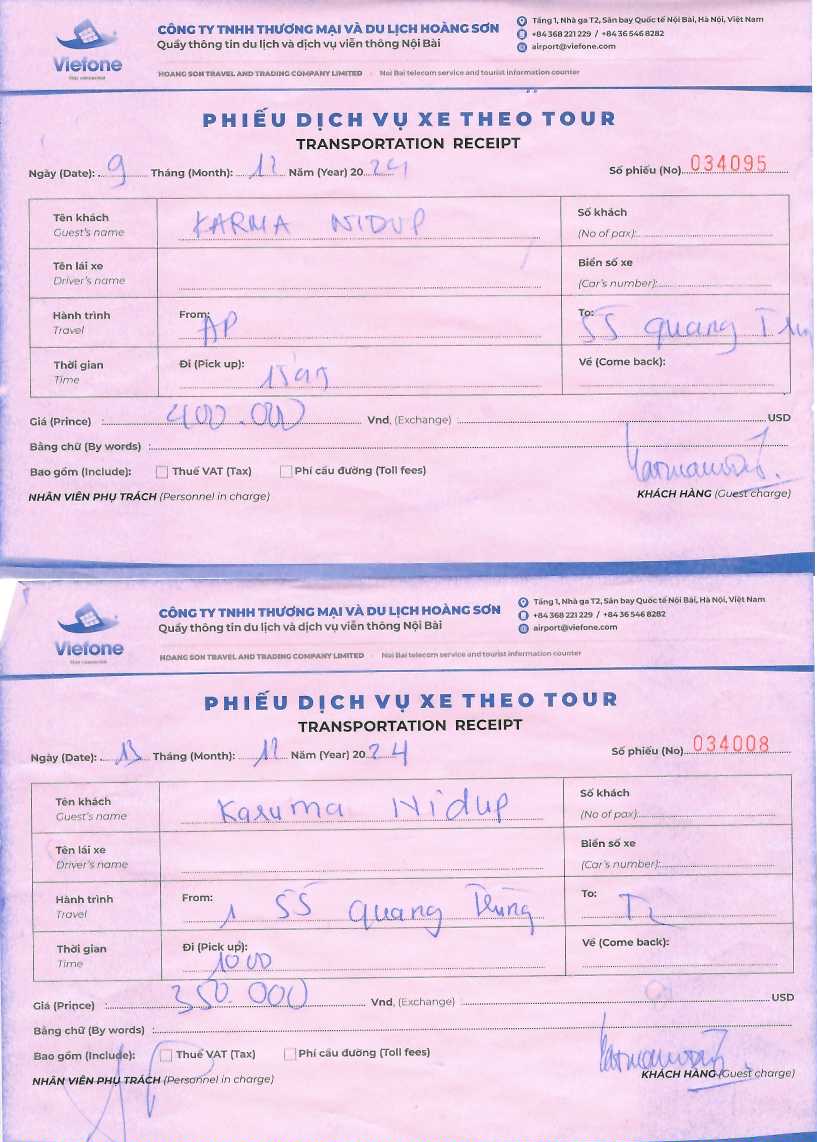 Viefone
Your connection
CÔNG TY TNHH THƯƠNG MẠI VÀ DU LỊCH HOÀNG SƠN
Quầy thông tin du lịch và dịch vụ viễn thông Nội Bài
HOANG SON TRAVEL AND TRADING COMPANY LIMITED - Noi Bai telecom service and tourist information counter
Tầng 1, Nhà ga T2, Sân bay Quốc tế Nội Bài, Hà Nội, Việt Nam
+84 368 221 229 / +84 36 546 8282
airport@viefone.com
PHIẾU DỊCH VỤ XE THEO TOUR
TRANSPORTATION RECEIPT
Ngày (Date): 9 Tháng (Month): 12 Năm (Year) 2024 Số phiếu (No) 034095
Tên khách KARMA NIDUP Số khách
Guest's name (No of pax):
Tên lái xe Biển số xe
Driver's name (Car's number):
Hành trình From: AP To: 55 Quang
Travel
Thời gian Đi (Pick up): Về (Come back):
Time
Giá (Prince) : 400.000 Vnd, (Exchange) : USD
Bằng chữ (By words) :
Bao gồm (Include): Thuế VAT (Tax) Phí cầu đường (Toll fees)
NHÂN VIÊN PHỤ TRÁCH (Personnel in charge) KHÁCH HÀNG (Guest charge)
Viefone
Your connection
CÔNG TY TNHH THƯƠNG MẠI VÀ DU LỊCH HOÀNG SƠN
Quầy thông tin du lịch và dịch vụ viễn thông Nội Bài
HOANG SON TRAVEL AND TRADING COMPANY LIMITED - Noi Bai telecom service and tourist information counter
Tầng 1, Nhà ga T2, Sân bay Quốc tế Nội Bài, Hà Nội, Việt Nam
+84 368 221 229 / +84 36 546 8282
airport@viefone.com
PHIẾU DỊCH VỤ XE THEO TOUR
TRANSPORTATION RECEIPT
Ngày (Date): 13 Tháng (Month): 12 Năm (Year) 2024 Số phiếu (No) 034008
Tên khách Karuma Nidup Số khách
Guest's name (No of pax):
Tên lái xe Biển số xe
Driver's name (Car's number):
Hành trình From: 1 55 Quang Trung To:
Travel
Thời gian Đi (Pick up): 1000 Về (Come back):
Time
Giá (Prince) : 350.000 Vnd, (Exchange) : USD
Bằng chữ (By words) :
Bao gồm (Include): Thuế VAT (Tax) Phí cầu đường (Toll fees)
NHÂN VIÊN PHỤ TRÁCH (Personnel in charge) KHÁCH HÀNG (Guest charge)